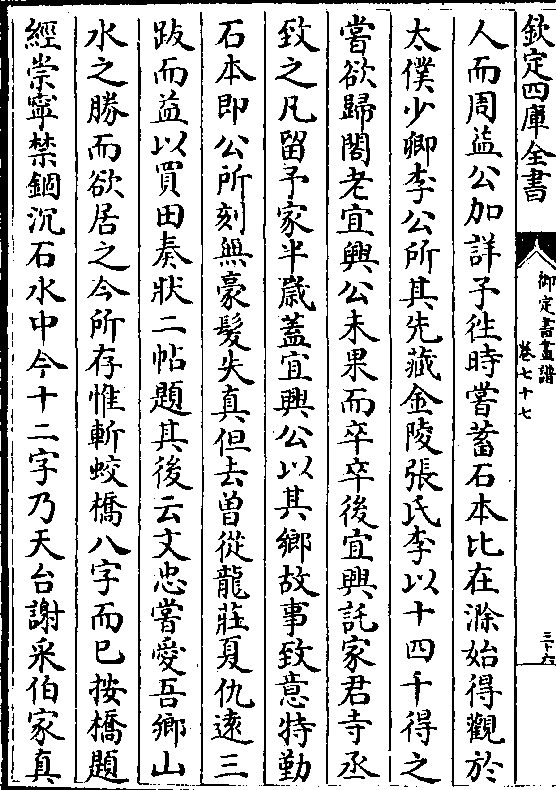 欽定四庫全書
御定書畫譜
卷七十七
三十六
人而周益公加詳予往時嘗蓄石本比在滁始得觀於
太僕少卿李公所其先藏金陵張氏李以十四千得之
嘗欲歸閣老宜興公未果而卒卒後宜興託家君寺丞
致之凡留予家半嵗蓋宜興公以其鄉故事致意特勤
石本即公所刻無豪髮失真但去曽從龍莊夏仇遠三
跋而益以買田奏狀二帖題其後云文忠嘗愛吾鄉山
水之勝而欲居之今所存惟斬蛟橋八字而已按橋題
經崇寧禁錮沉石水中今十二字乃天台謝采伯家真